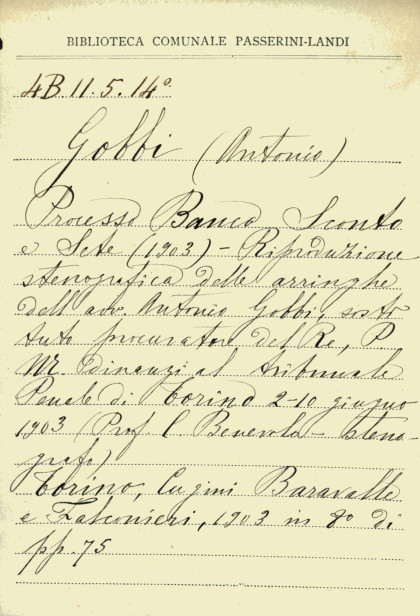 BIBLIOTECA COMUNALE PASSERINI-LANDI
4B.II.5.14°
Gobbi (Antonio)
Processo Banco Sconto
e Sete (1903) - Riproduzione
stenografica delle arringhe
dell'avv. Antonio Gobbi, sosti
tuto procuratore del Re, P.
M. dinanzi al tribunale
Penale di Torino 2-10 giugno
1903 (Prof C. Benevola - steno-
grafo)
Torino, Eugini Baravalle
e Falconieri, 1903 in 8° di
pp. 75